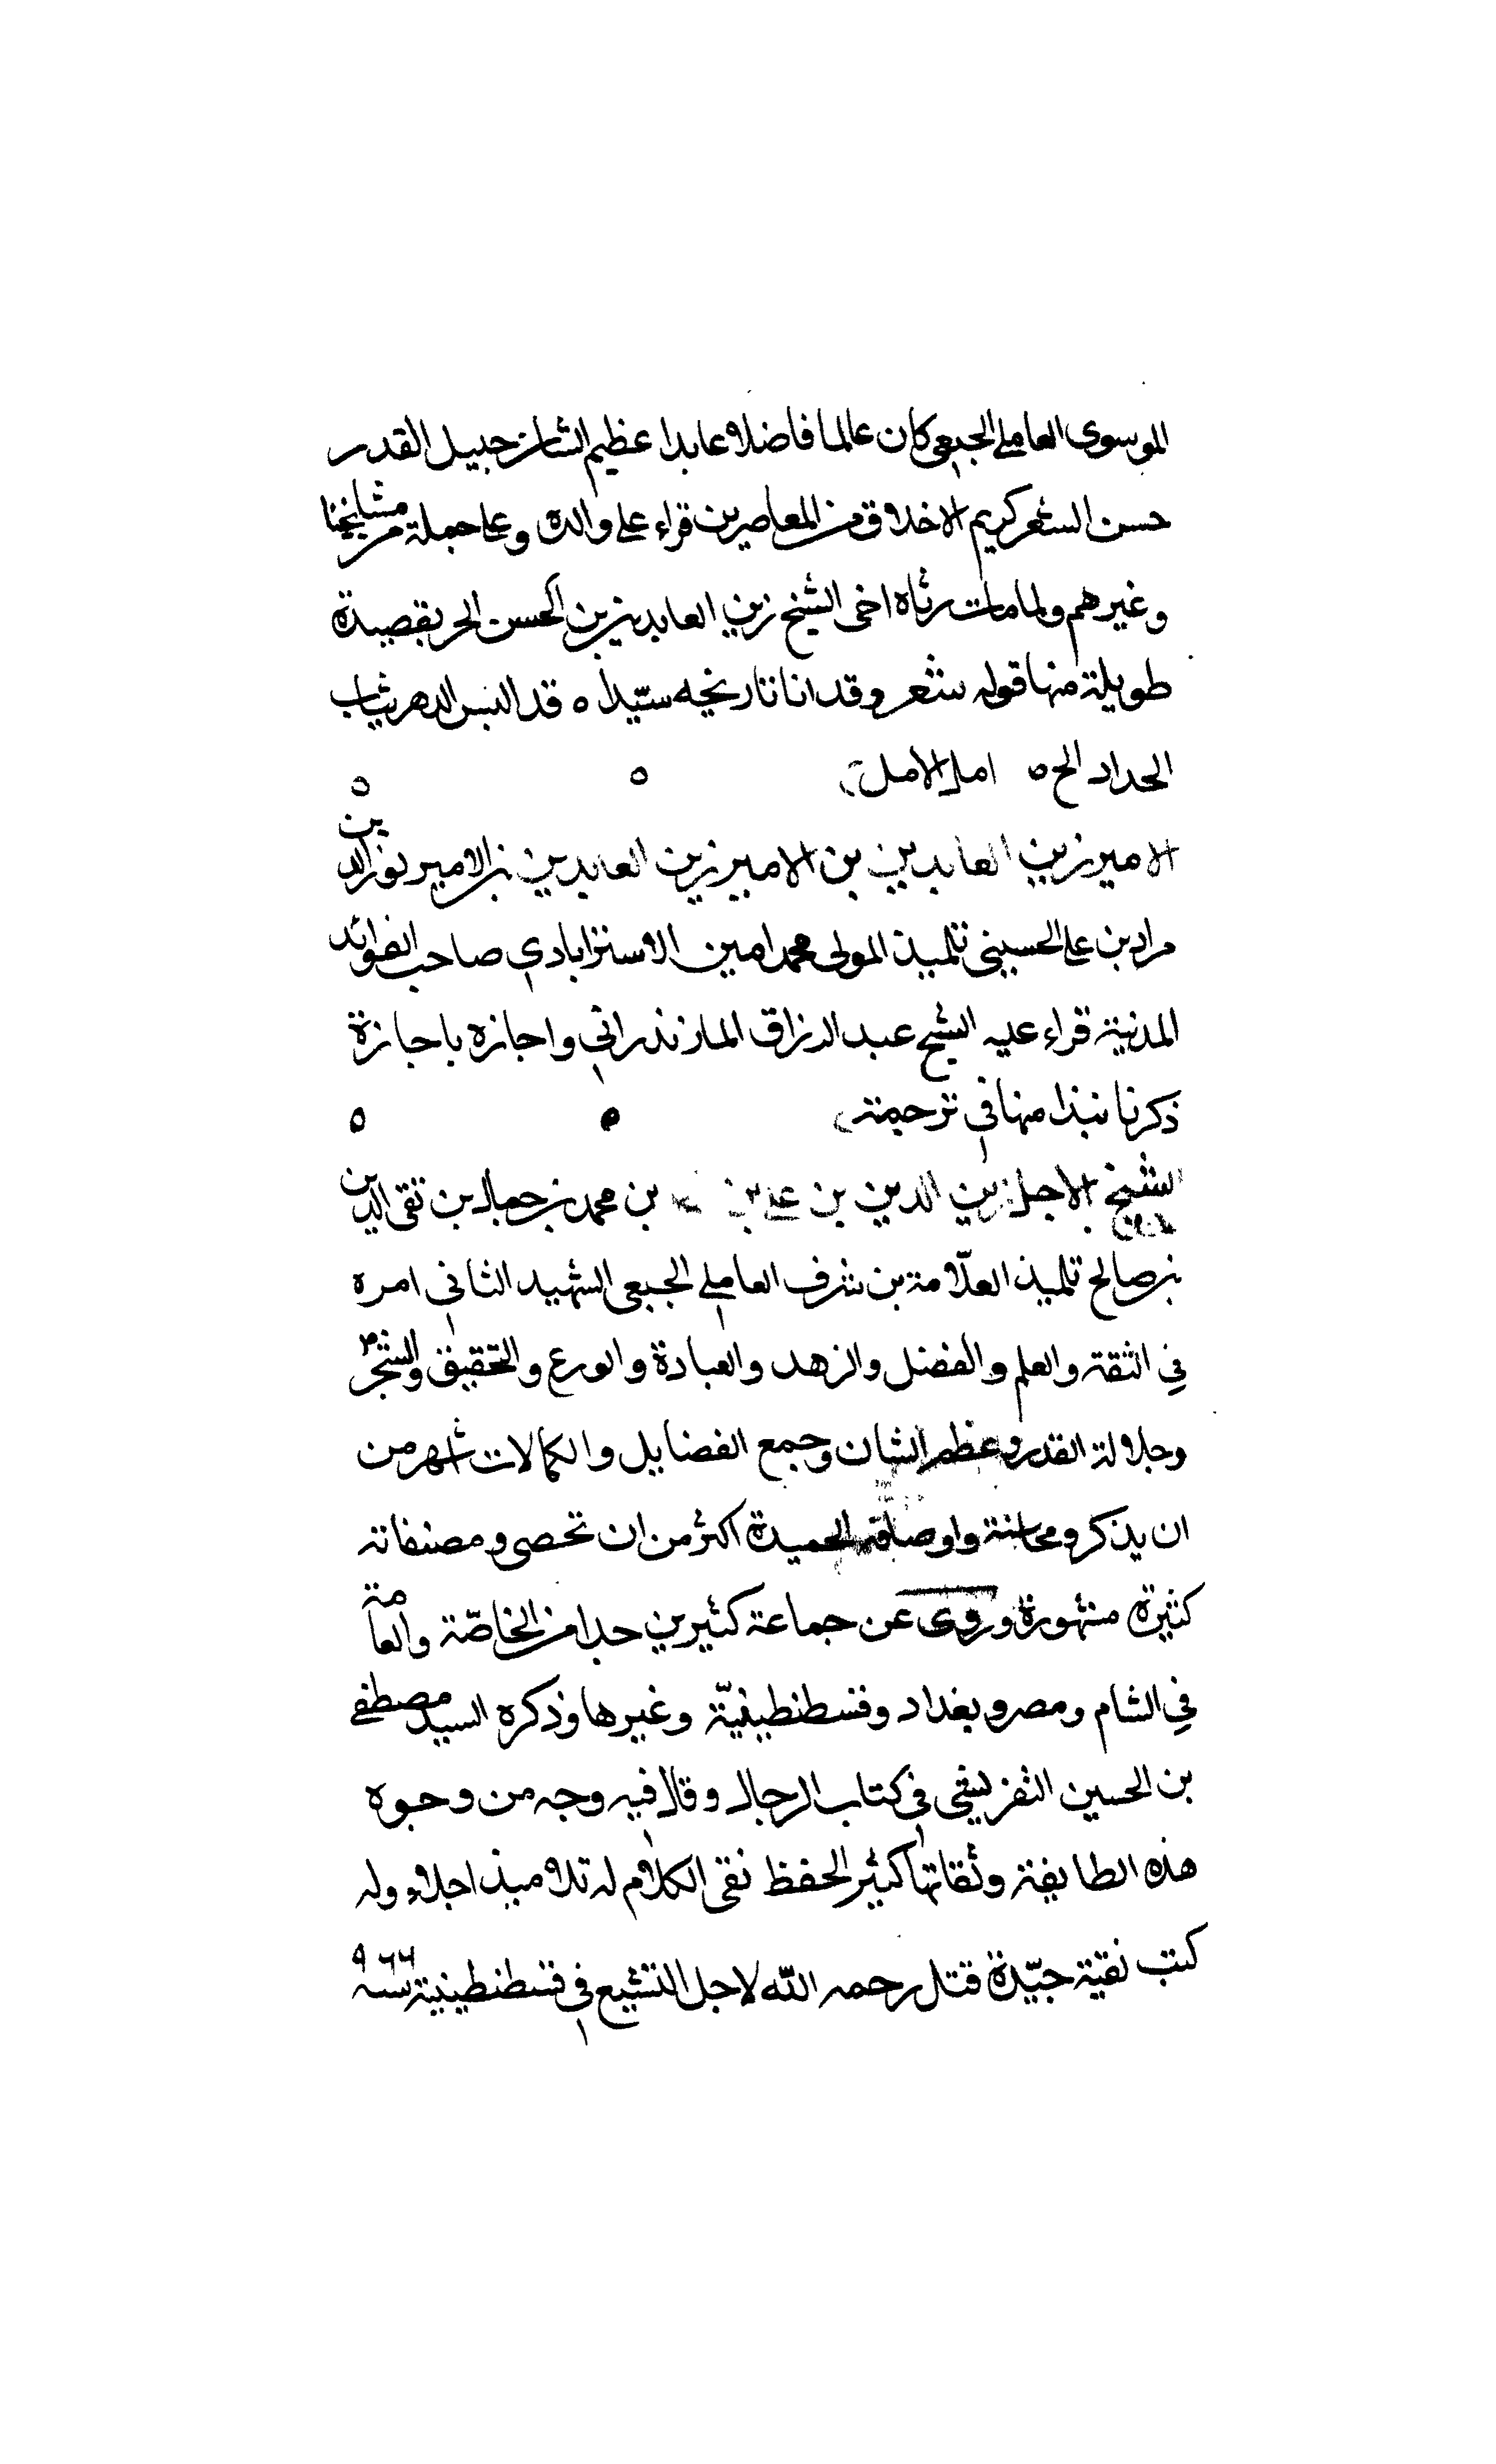 الموسوى العاملى الجبعى كان عالما فاضلا عابدا عظيم الشان جليل القدر
حسن الشعر كريم الاخلاق من المعاصرين قراء على والده وعلى جملة من مشايخنا
وغيرهم ولما مات رثاه اخى الشيخ زين العابدين بن الحسن الحر بقصيدة
طويلة منها قوله شعر وقد اتانا تاريخه سيّدا ه قد البس الدهر ثياب
الحداد الخ ه امل الامل ه ه
الامير زين العابدين بن الامير زين العابدين بن الامير نور الدين
مراد بن على الحسينى تلميذ المولى محمد امين الاسترابادي صاحب الفوائد
المدنية قراء عليه الشيخ عبد الرزاق المازندرانى واجازه باجازة
ذكرنا نبذا منها فى ترجمته ه ه
الشيخ الاجل زين الدين بن على بن بن محمد بن جمال بن تقى الدين
بن صالح تلميذ العلّامة بن شرف العاملى الجبعى الشهيد الثانى امره
فى الثقة والعلم والفضل والزهد والعبادة والورع والتحقيق والتبحر
وجلالة القدر وعظم الشان وجمع الفضايل والكمالات اشهر من
ان يذكر ومحاسنه واوصافه الحميدة اكثر من ان تحصى ومصنفاته
كثيرة مشهورة وروى عن جماعة كثيرين جدا من الخاصّة والعامة
فى الشام ومصر وبغداد وقسطنطينيّة وغيرها وذكره السيد مصطفى
بن الحسين التفريشى فى كتاب الرجال وقال فيه وجه من وجوه
هذه الطايفة وثقاتها كثير الحفظ نقى الكلام له تلاميذ اجلاء وله
كتب نقية جيّدة قتل رحمه اللّه لاجل التشيع فى قسطنطينية سنه ٩٦٦